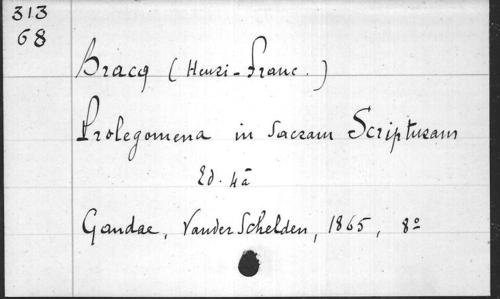 313
68
Bracq (Henri-Franc.)
Prolegomena in Sacram Scripturam
Ed. 4a
Gandae, Vander Schelden, 1865, 8º